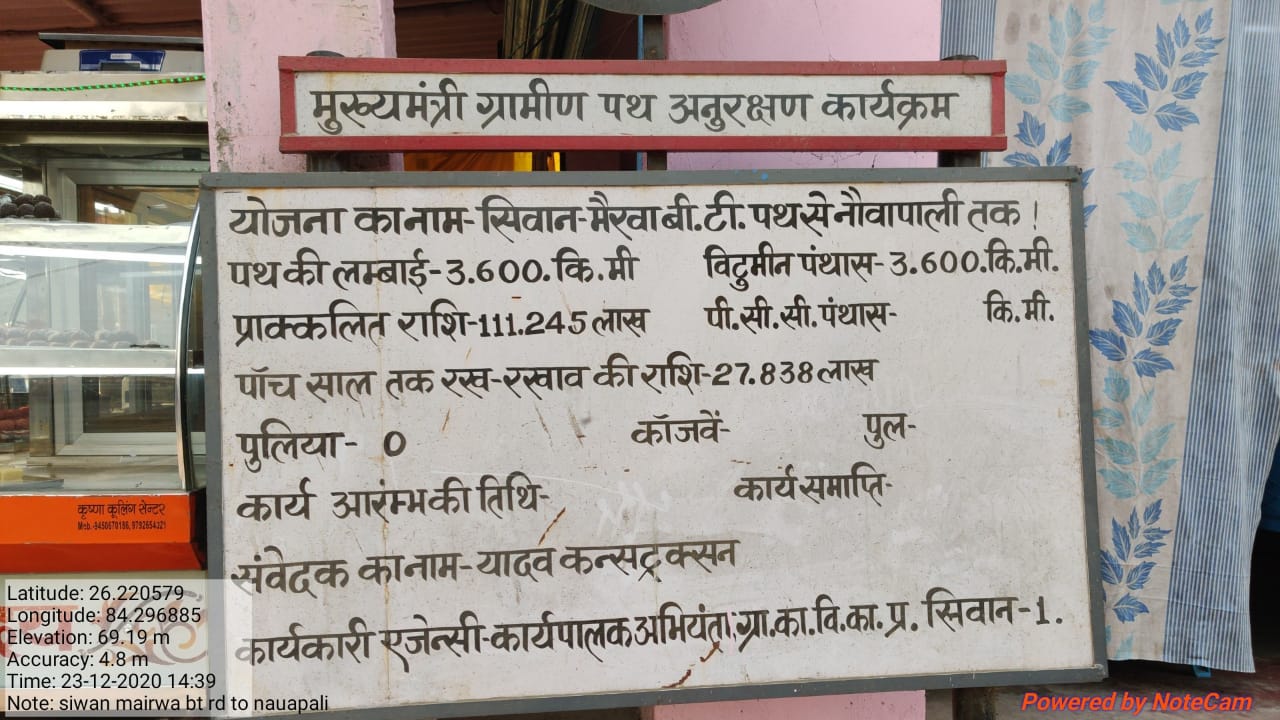 मुख्यमंत्री ग्रामीण पथ अनुरक्षण कार्यक्रम
योजना का नाम-सिवान-मैरवा बी.टी. पथ से नौवापाली तक !
पथ की लम्बाई-3.600.कि.मी विटुमीन पंथास-3.600.कि.मी.
प्राक्कलित राशि-111.245 लाख पी.सी.सी.पंथास- कि.मी.
पॉच साल तक रख-रखाव की राशि-27.838 लाख
पुलिया- 0 कॉजवें- पुल-
कार्य आरंम्भ की तिथि- कार्य समाप्ति-
संवेदक का नाम-यादव कन्सट्रक्सन
कार्यकारी एजेन्सी-कार्यपालक अभियंता, ग्रा.का.वि.का.प्र. सिवान-1.
कृष्णा कूलिंग सेन्टर
Mob.-9450670186, 9792654321
Latitude: 26.220579
Longitude: 84.296885
Elevation: 69.19 m
Accuracy: 4.8 m
Time: 23-12-2020 14:39
Note: siwan mairwa bt rd to nauapali
Powered by NoteCam